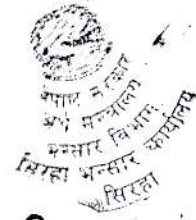 नेपाल सरकार
अर्थ मन्त्रालय
भन्सार विभाग
सिरहा भन्सार कार्यालय
सिरहा